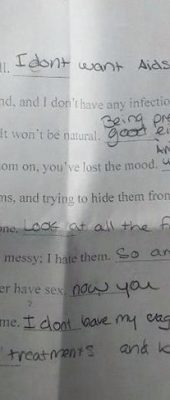 ll. I dont want Aids
nd, and I don't have any infectio
Being pre
It won't be natural. good ei
om on, you've lost the mood.
ms, and trying to hide them from
one. Look at all the f
messy; I hate them. So ar
er have sex. now you
me. I dont leave my
treatments and k